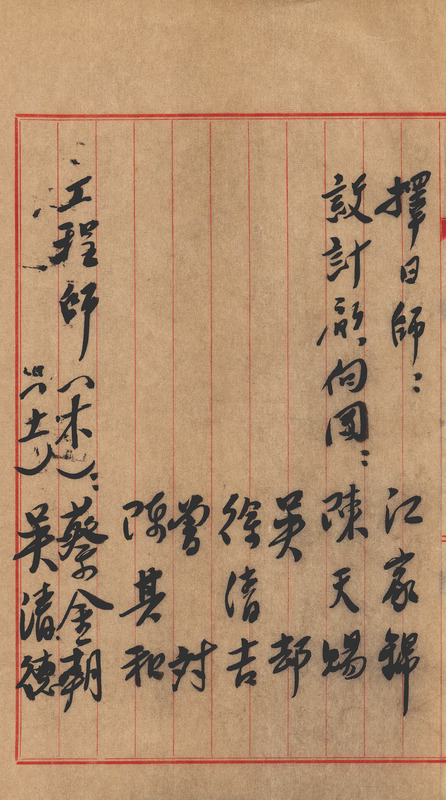 擇日師：江家錦
設計顧向团：陳天賜
吳却
徐清吉
曾対
陈其和
工程師（木）：蔡金朝
（土）吳清德